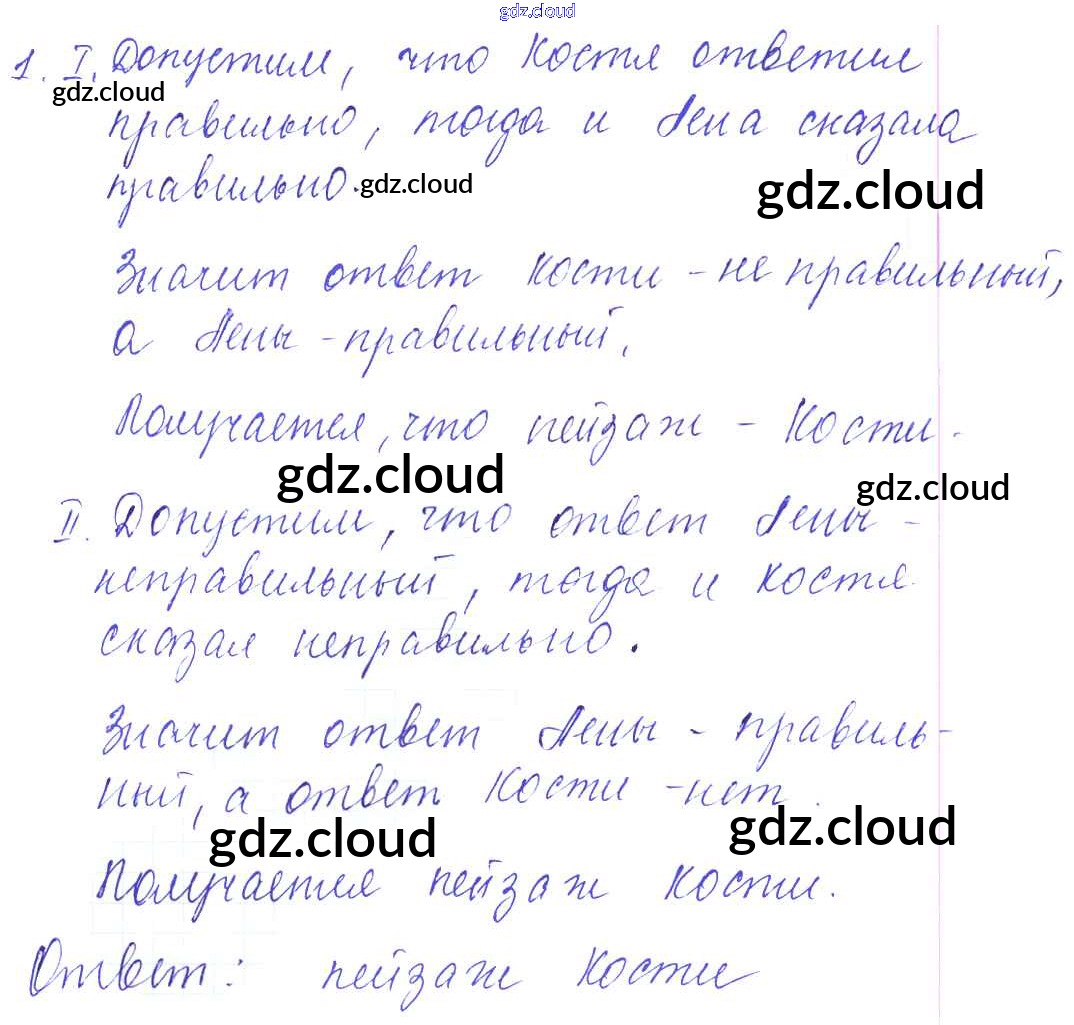 gdz.cloud
1. I. Допустим, что Костя ответил
gdz.cloud
правильно, тогда и Лена сказала
правильно. gdz.cloud
gdz.cloud
Значит ответ Кости - не правильный,
а Лены - правильный.
Получается, что пейзаж - Кости.
gdz.cloud
gdz.cloud
II. Допустим, что ответ Лены -
неправильный, тогда и Костя
сказал неправильно.
Значит ответ Лены - правиль-
ный, а ответ Кости - нет.
gdz.cloud
gdz.cloud
Получается пейзаж Кости.
Ответ: пейзаж Кости